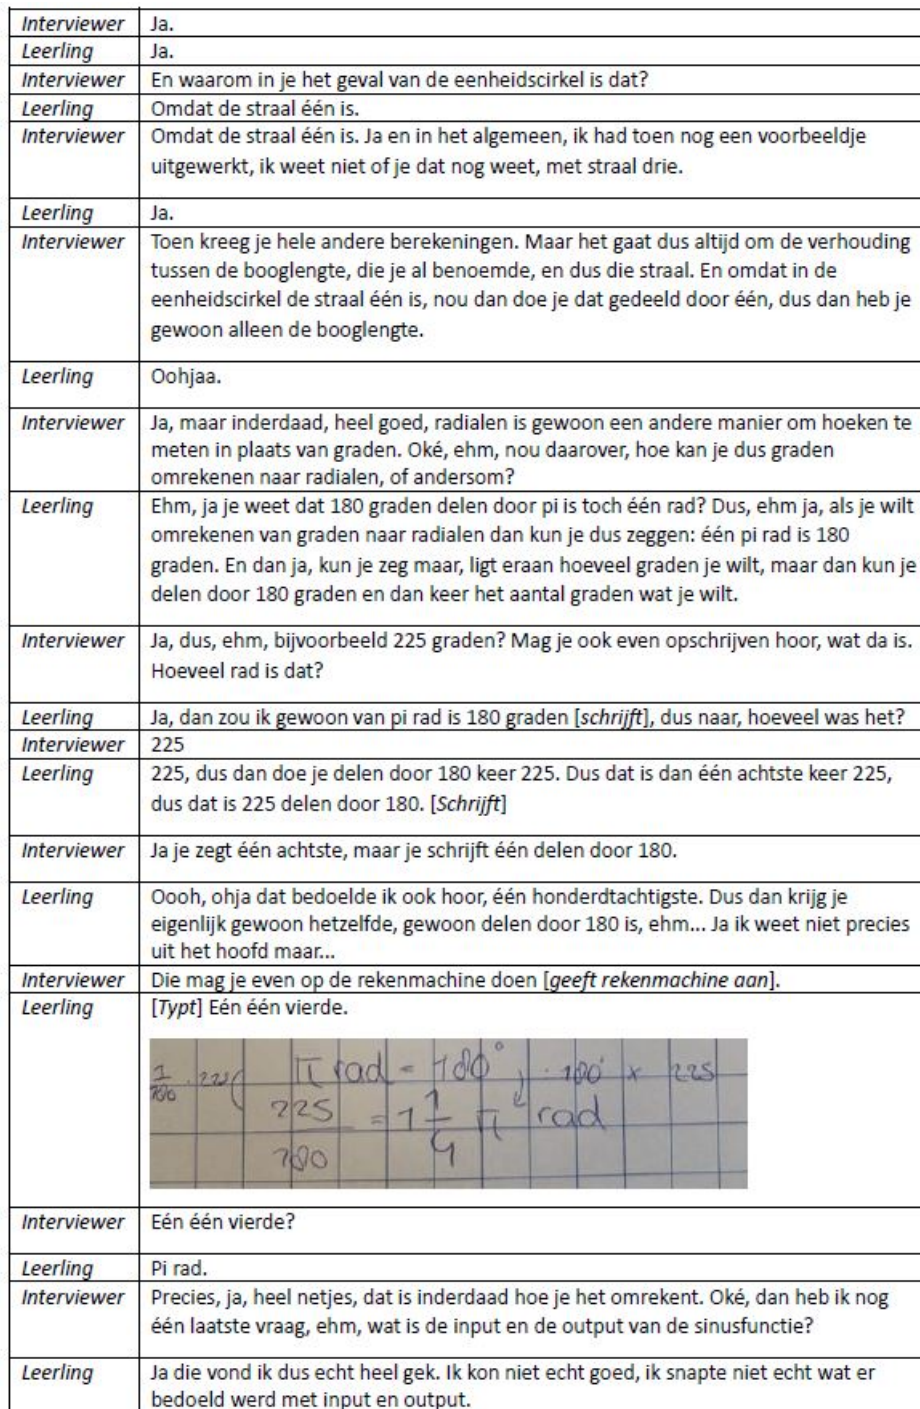 Interviewer Ja.
Leerling Ja.
Interviewer En waarom in je het geval van de eenheidscirkel is dat?
Leerling Omdat de straal één is.
Interviewer Omdat de straal één is. Ja en in het algemeen, ik had toen nog een voorbeeldje
uitgewerkt, ik weet niet of je dat nog weet, met straal drie.
Leerling Ja.
Interviewer Toen kreeg je hele andere berekeningen. Maar het gaat dus altijd om de verhouding
tussen de booglengte, die je al benoemde, en dus die straal. En omdat in de
eenheidscirkel de straal één is, nou dan doe je dat gedeeld door één, dus dan heb je
gewoon alleen de booglengte.
Leerling Oohjaa.
Interviewer Ja, maar inderdaad, heel goed, radialen is gewoon een andere manier om hoeken te
meten in plaats van graden. Oké, ehm, nou daarover, hoe kan je dus graden
omrekenen naar radialen, of andersom?
Leerling Ehm, ja je weet dat 180 graden delen door pi is toch één rad? Dus, ehm ja, als je wilt
omrekenen van graden naar radialen dan kun je dus zeggen: één pi rad is 180
graden. En dan ja, kun je zeg maar, ligt eraan hoeveel graden je wilt, maar dan kun je
delen door 180 graden en dan keer het aantal graden wat je wilt.
Interviewer Ja, dus, ehm, bijvoorbeeld 225 graden? Mag je ook even opschrijven hoor, wat da is.
Hoeveel rad is dat?
Leerling Ja, dan zou ik gewoon van pi rad is 180 graden [schrijft], dus naar, hoeveel was het?
Interviewer 225
Leerling 225, dus dan doe je delen door 180 keer 225. Dus dat is dan één achtste keer 225,
dus dat is 225 delen door 180. [Schrijft]
Interviewer Ja je zegt één achtste, maar je schrijft één delen door 180.
Leerling Oooh, ohja dat bedoelde ik ook hoor, één honderdtachtigste. Dus dan krijg je
eigenlijk gewoon hetzelfde, gewoon delen door 180 is, ehm... Ja ik weet niet precies
uit het hoofd maar...
Interviewer Die mag je even op de rekenmachine doen [geeft rekenmachine aan].
Leerling [Typt] Eén één vierde.
1/180 · 225 ( π rad = 180° ) : 180 × 225
225/180 = 1 1/4 π rad
Interviewer Eén één vierde?
Leerling Pi rad.
Interviewer Precies, ja, heel netjes, dat is inderdaad hoe je het omrekent. Oké, dan heb ik nog
één laatste vraag, ehm, wat is de input en de output van de sinusfunctie?
Leerling Ja die vond ik dus echt heel gek. Ik kon niet echt goed, ik snapte niet echt wat er
bedoeld werd met input en output.